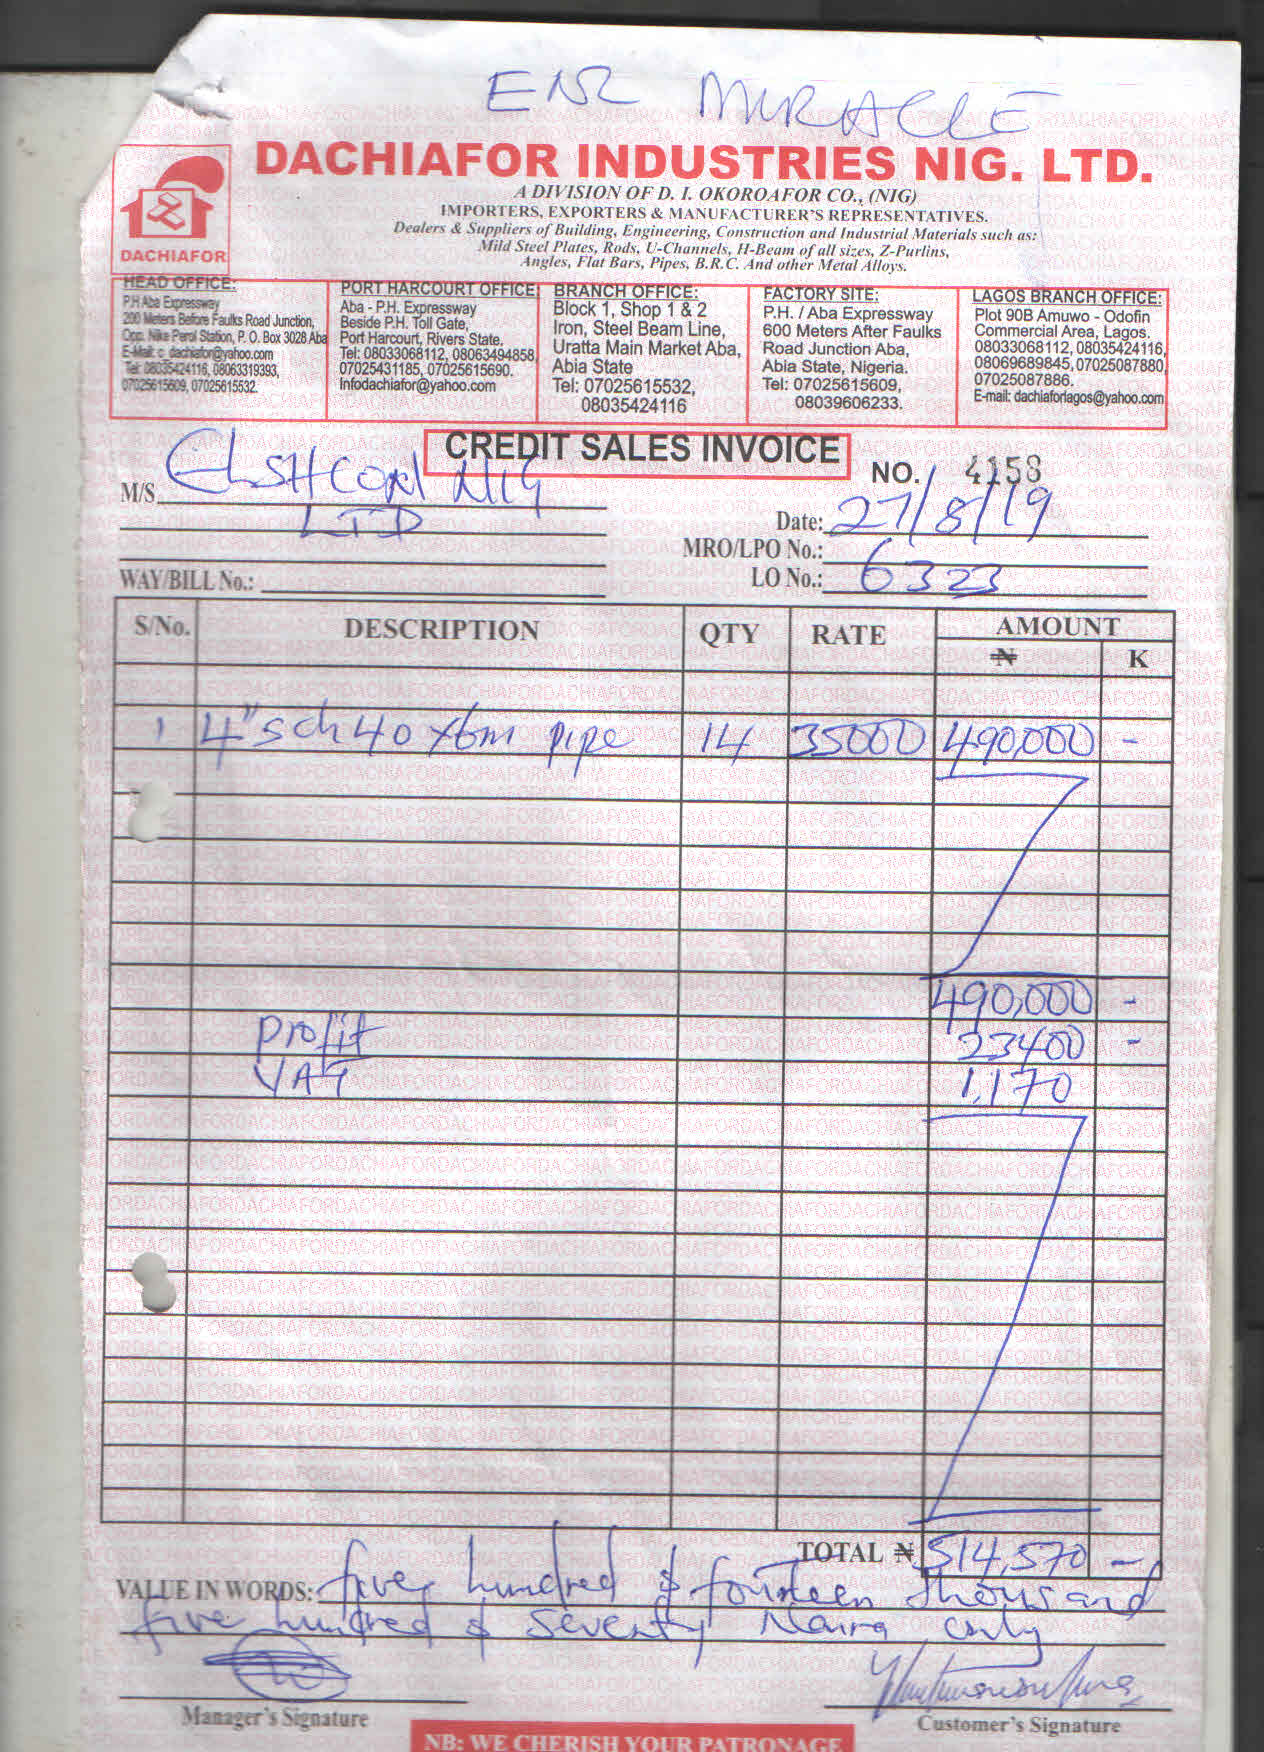 ENR MIRACLE
DACHIAFOR INDUSTRIES NIG. LTD.
DACHIAFOR
A DIVISION OF D. I. OKOROAFOR CO., (NIG)
IMPORTERS, EXPORTERS & MANUFACTURER'S REPRESENTATIVES.
Dealers & Suppliers of Building, Engineering, Construction and Industrial Materials such as:
Mild Steel Plates, Rods, U-Channels, H-Beam of all sizes, Z-Purlins,
Angles, Flat Bars, Pipes, B.R.C. And other Metal Alloys.
HEAD OFFICE:
P.H Aba Expressway
200 Meters Before Faulks Road Junction,
Opp. Nike Perol Station, P. O. Box 3028 Aba
E-Mail: c_dachiafor@yahoo.com
Tel: 08035424116, 08063319393,
07025615609, 07025615532.
PORT HARCOURT OFFICE:
Aba - P.H. Expressway
Beside P.H. Toll Gate,
Port Harcourt, Rivers State.
Tel: 08033068112, 08063494858,
07025431185, 07025615690.
Infodachiafor@yahoo.com
BRANCH OFFICE:
Block 1, Shop 1 & 2
Iron, Steel Beam Line,
Uratta Main Market Aba,
Abia State
Tel: 07025615532,
08035424116
FACTORY SITE:
P.H. / Aba Expressway
600 Meters After Faulks
Road Junction Aba,
Abia State, Nigeria.
Tel: 07025615609,
08039606233.
LAGOS BRANCH OFFICE:
Plot 90B Amuwo - Odofin
Commercial Area, Lagos.
08033068112, 08035424116,
08069689845, 07025087880,
07025087886.
E-mail: dachiaforlagos@yahoo.com
CREDIT SALES INVOICE
NO. 4158
M/S ELSHCON NIG
LTD
Date: 27/8/19
MRO/LPO No.:
WAY/BILL No.:
LO No.: 6323
S/No. DESCRIPTION QTY RATE AMOUNT
₦ K
1 4" sch 40 x6m pipe 14 35000 490,000 -
490,000 -
Profit 23400 -
VAT 1,170
TOTAL ₦ 514,570 -
VALUE IN WORDS: five hundred & fourteen thousand
five hundred & seventy Naira only
Manager's Signature
Customer's Signature
NB: WE CHERISH YOUR PATRONAGE